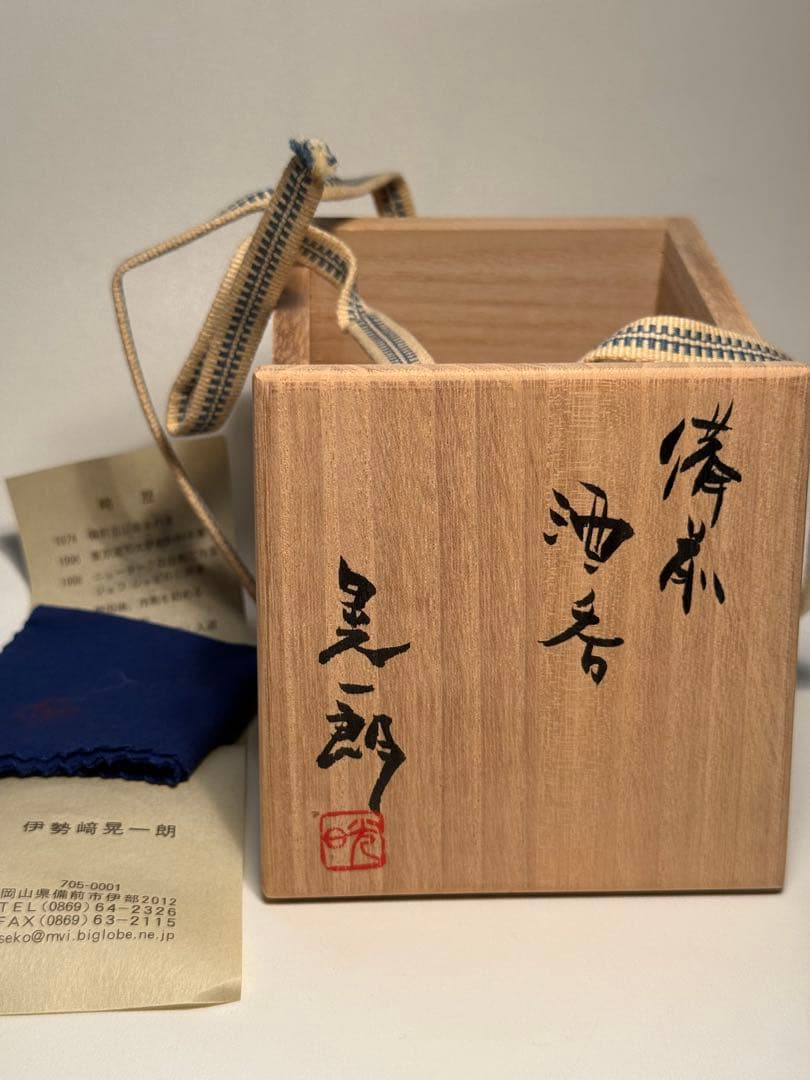 備前
酒呑
晃一朗
略歴
1996
1998
帰国後、作陶を始める
入選
伊勢﨑晃一朗
705-0001
岡山県備前市伊部2012
TEL(0869)64-2326
FAX(0869)63-2115
seko@mvi.biglobe.ne.jp